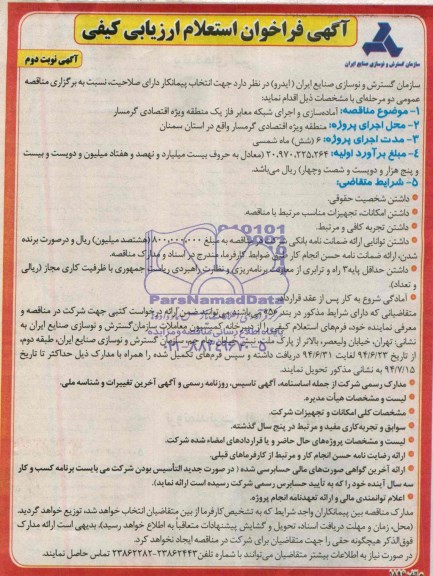 آگهی فراخوان استعلام ارزیابی کیفی
سازمان گسترش و نوسازی صنایع ایران
آگهی نوبت دوم
سازمان گسترش و نوسازی صنایع ایران (ایدرو) در نظر دارد جهت انتخاب پیمانکار دارای صلاحیت، نسبت به برگزاری مناقصه
عمومی دو مرحله‌ای با مشخصات ذیل اقدام نماید:
۱- موضوع مناقصه: آماده‌سازی و اجرای شبکه معابر فاز یک منطقه ویژه اقتصادی گرمسار
۲- محل اجرای پروژه: منطقه ویژه اقتصادی گرمسار واقع در استان سمنان
۳- مدت اجرای پروژه: ۶ (شش) ماه شمسی
۴- مبلغ برآورد اولیه: ۲۰،۹۷۰،۲۲۵،۲۶۴ (معادل به حروف بیست میلیارد و نهصد و هفتاد میلیون و دویست و بیست
و پنج هزار و دویست و شصت وچهار) ریال می‌باشد.
۵- شرایط متقاضی:
• داشتن شخصیت حقوقی.
• داشتن امکانات، تجهیزات مناسب مرتبط با مناقصه.
• داشتن تجربه کافی و مرتبط.
• داشتن توانایی ارائه ضمانت نامه بانکی شرکت در مناقصه به مبلغ ۸۰۰،۰۰۰،۰۰۰ (هشتصد میلیون) ریال و درصورت برنده
شدن، ارائه ضمانت نامه حسن انجام کار طبق ضوابط کارفرما، مندرج در اسناد و مدارک مناقصه.
• داشتن حداقل پایه۳ راه و ترابری از معاونت برنامه‌ریزی و نظارت راهبردی ریاست جمهوری با ظرفیت کاری مجاز (ریالی
و تعداد).
• آمادگی شروع به کار پس از عقد قرارداد.
متقاضیانی که دارای شرایط مذکور در بند «۵» می‌باشند می‌توانند ضمن ارائه درخواست کتبی جهت شرکت در مناقصه و
معرفی نماینده خود، فرم‌های استعلام کیفی را از دبیرخانه کمیسیون معاملات سازمان گسترش و نوسازی صنایع ایران به
نشانی: تهران، خیابان ولیعصر، بالاتر از پارک ملت، نبش خیابان جام جم، سازمان گسترش و نوسازی صنایع ایران، طبقه دوم،
از تاریخ ۹۴/۶/۲۳ لغایت ۹۴/۶/۳۱ دریافت داشته و سپس فرم‌های تکمیل شده را همراه با مدارک ذیل حداکثر تا تاریخ
۹۴/۷/۱۵ به نشانی مذکور تحویل نمایند.
• مدارک رسمی شرکت از جمله اساسنامه، آگهی تاسیس، روزنامه رسمی و آگهی آخرین تغییرات و شناسه ملی.
• لیست و مشخصات هیأت مدیره.
• مشخصات کلی امکانات و تجهیزات شرکت.
• سوابق و تجربه‌کاری مفید و مرتبط در پنج سال گذشته.
• لیست و مشخصات پروژه‌های حال حاضر و یا قراردادهای امضاء شده شرکت.
• ارائه رضایت نامه حسن انجام کار و مرتبط از کارفرماهای قبلی.
• ارائه آخرین گواهی صورت‌های مالی حسابرسی شده (در صورت جدید التأسیس بودن شرکت می بایست برنامه کسب و کار
سه سال آینده خود را که به تأیید حسابرس رسمی شرکت رسیده است ارائه نماید).
• اعلام توانمندی مالی و ارائه تعهدنامه انجام پروژه.
مدارک مناقصه بین پیمانکاران واجد شرایط که به تشخیص کارفرما از بین متقاضیان انتخاب خواهد شد، توزیع خواهد گردید.
(محل، زمان و مهلت دریافت اسناد، تحویل و گشایش پیشنهادات متعاقباً به اطلاع خواهد رسید). بدیهی است ارائه مدارک
فوق‌الذکر هیچگونه حقی را جهت متقاضیان برای شرکت در مناقصه ایجاد نخواهد کرد.
در صورت نیاز به اطلاعات بیشتر متقاضیان می‌توانند با شماره تلفن ۲۳۸۶۲۴۴۳-۲۳۸۶۲۲۸۲ تماس حاصل نمایند.
ParsNamadData
۰۲۱-۸۸۳۴۹۶۷۰-۵